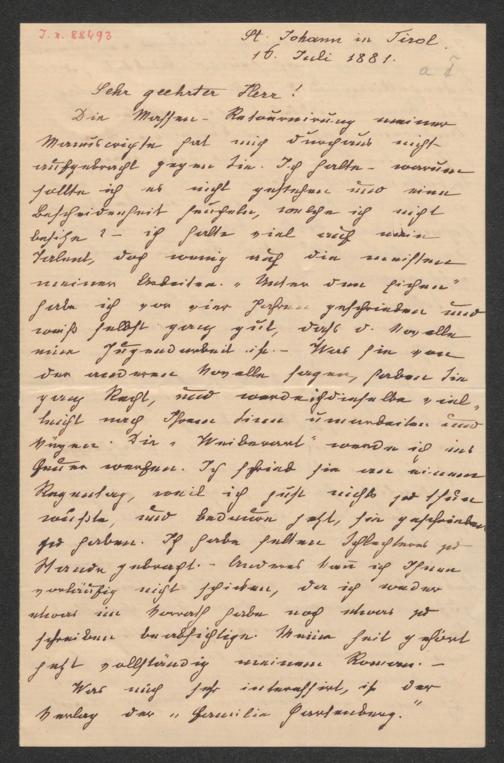 J. n. 88493
St. Johann in Tirol.
16. Juli 1881.
a I
Sehr geehrter Herr!
Die Massen-Retournirung meiner
Manuscripte hat mich durchaus nicht
aufgebracht gegen Sie. Ich halte - warum
sollte ich es nicht gestehen und eine
Bescheidenheit heucheln, welche ich nicht
besitze? - ich halte viel auf mein
Talent, doch wenig auf die meisten
meiner Arbeiten. „Unter den Eichen"
habe ich vor vier Jahren geschrieben und
weiß selbst ganz gut, daß d. Novelle
eine Jugendarbeit ist. - Was Sie von
der anderen Novelle sagen, haben Sie
ganz Recht, und werde ich dieselbe viel-
leicht nach Ihrem Sinn umarbeiten und
kürzen. Die „Weiberart" werde ich ins
Feuer werfen. Ich schrieb sie an einem
Regentag, weil ich just nichts zu thun
wußte, und bedaure jetzt, sie geschrieben
zu haben. Ich habe selten Schlechteres zu
Stande gebracht. - Anderes kann ich Ihnen
vorläufig nicht schicken, da ich weder
etwas im Vorrath habe noch etwas zu
schreiben beabsichtige. Meine Zeit gehört
jetzt vollständig meinem Roman. -
Was mich sehr interessirt, ist der
Verlag der „Familie Hartenberg."